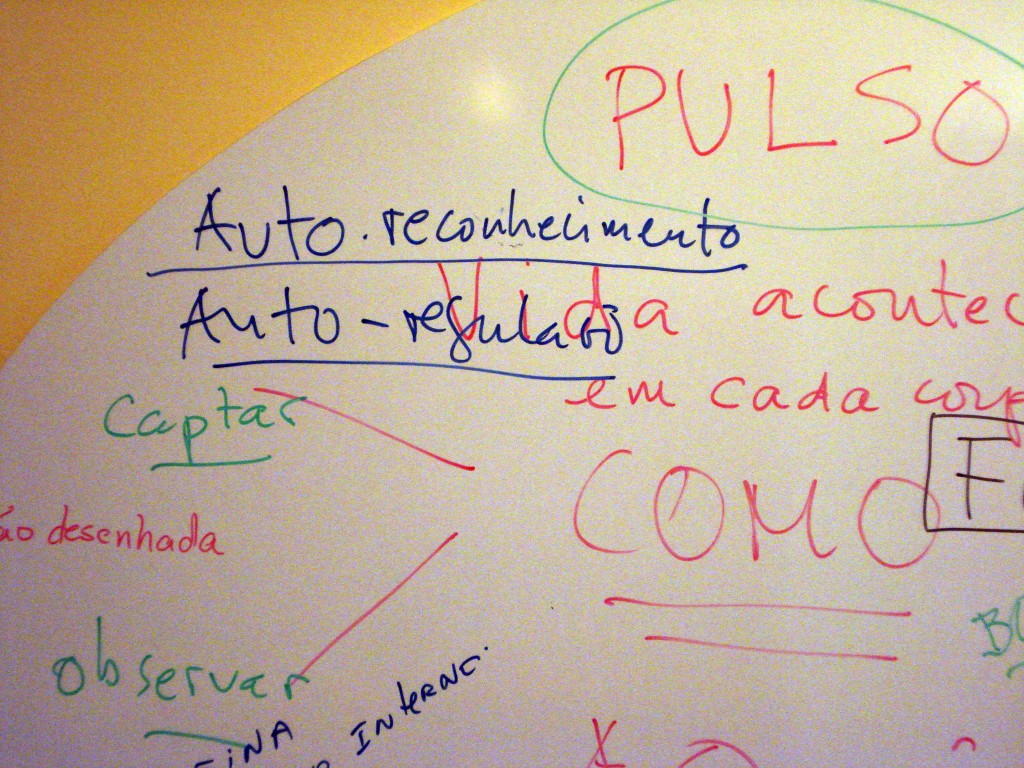 PULSO
Auto.reconhecimento
Vida acontec
Auto-regulação
em cada corp
Captar
COMO
F
ão desenhada
observar
INTERNC